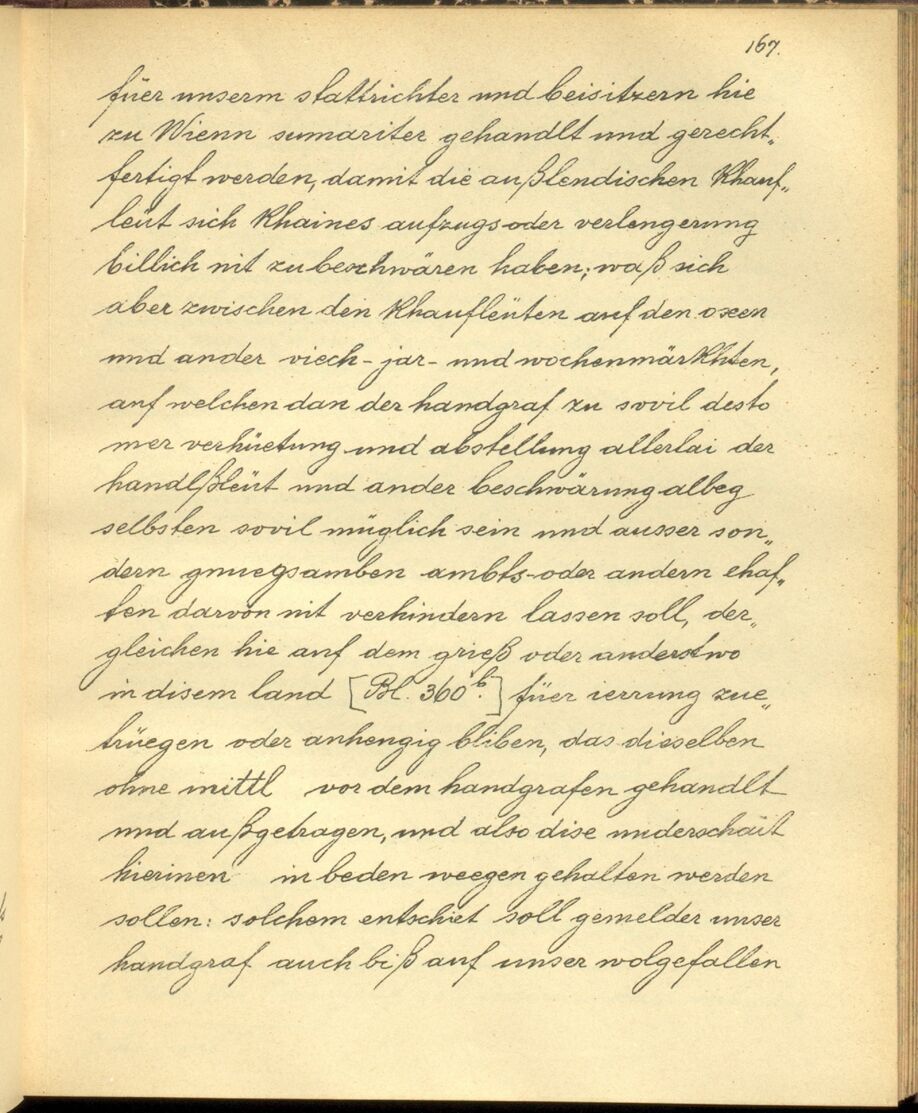 167.
füer unserm stattrichter und beisitzern hie
zu Wienn sumariter gehandlt und gerecht„
fertigt werden, damit die außlendischen Khauf„
leüt sich Khaines aufzugs oder verlengerung
billich nit zu beschwären haben; waß sich
aber zwischen den Khaufleüten auf den oxen
und ander viech- jar- und wochenmärkhten,
auf welchen dan der handgraf zu sovil desto
mer verhüetung und abstellung allerlai der
handlßleüt und ander beschwärung albeg
selbsten sovil müglich sein und ausser son„
dern gnuegsamben ambts- oder andern ehaf„
ten darvon nit verhindern lassen soll, der„
gleichen hie auf dem grieß oder anderstwo
in disem land [Bl. 360b.] füer ierrung zue„
trüegen oder anhengig bliben, das dieselben
ohne mittl vor dem handgrafen gehandlt
und außgetragen, und also dise underschait
hierinen in beden weegen gehalten werden
sollen: solchem entschiet soll gemelder unser
handgraf auch biß auf unser wolgefallen